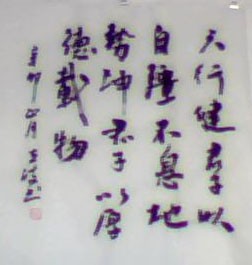 天行健君子以
自强不息地
势坤君子以厚
德載物
辛卯正月